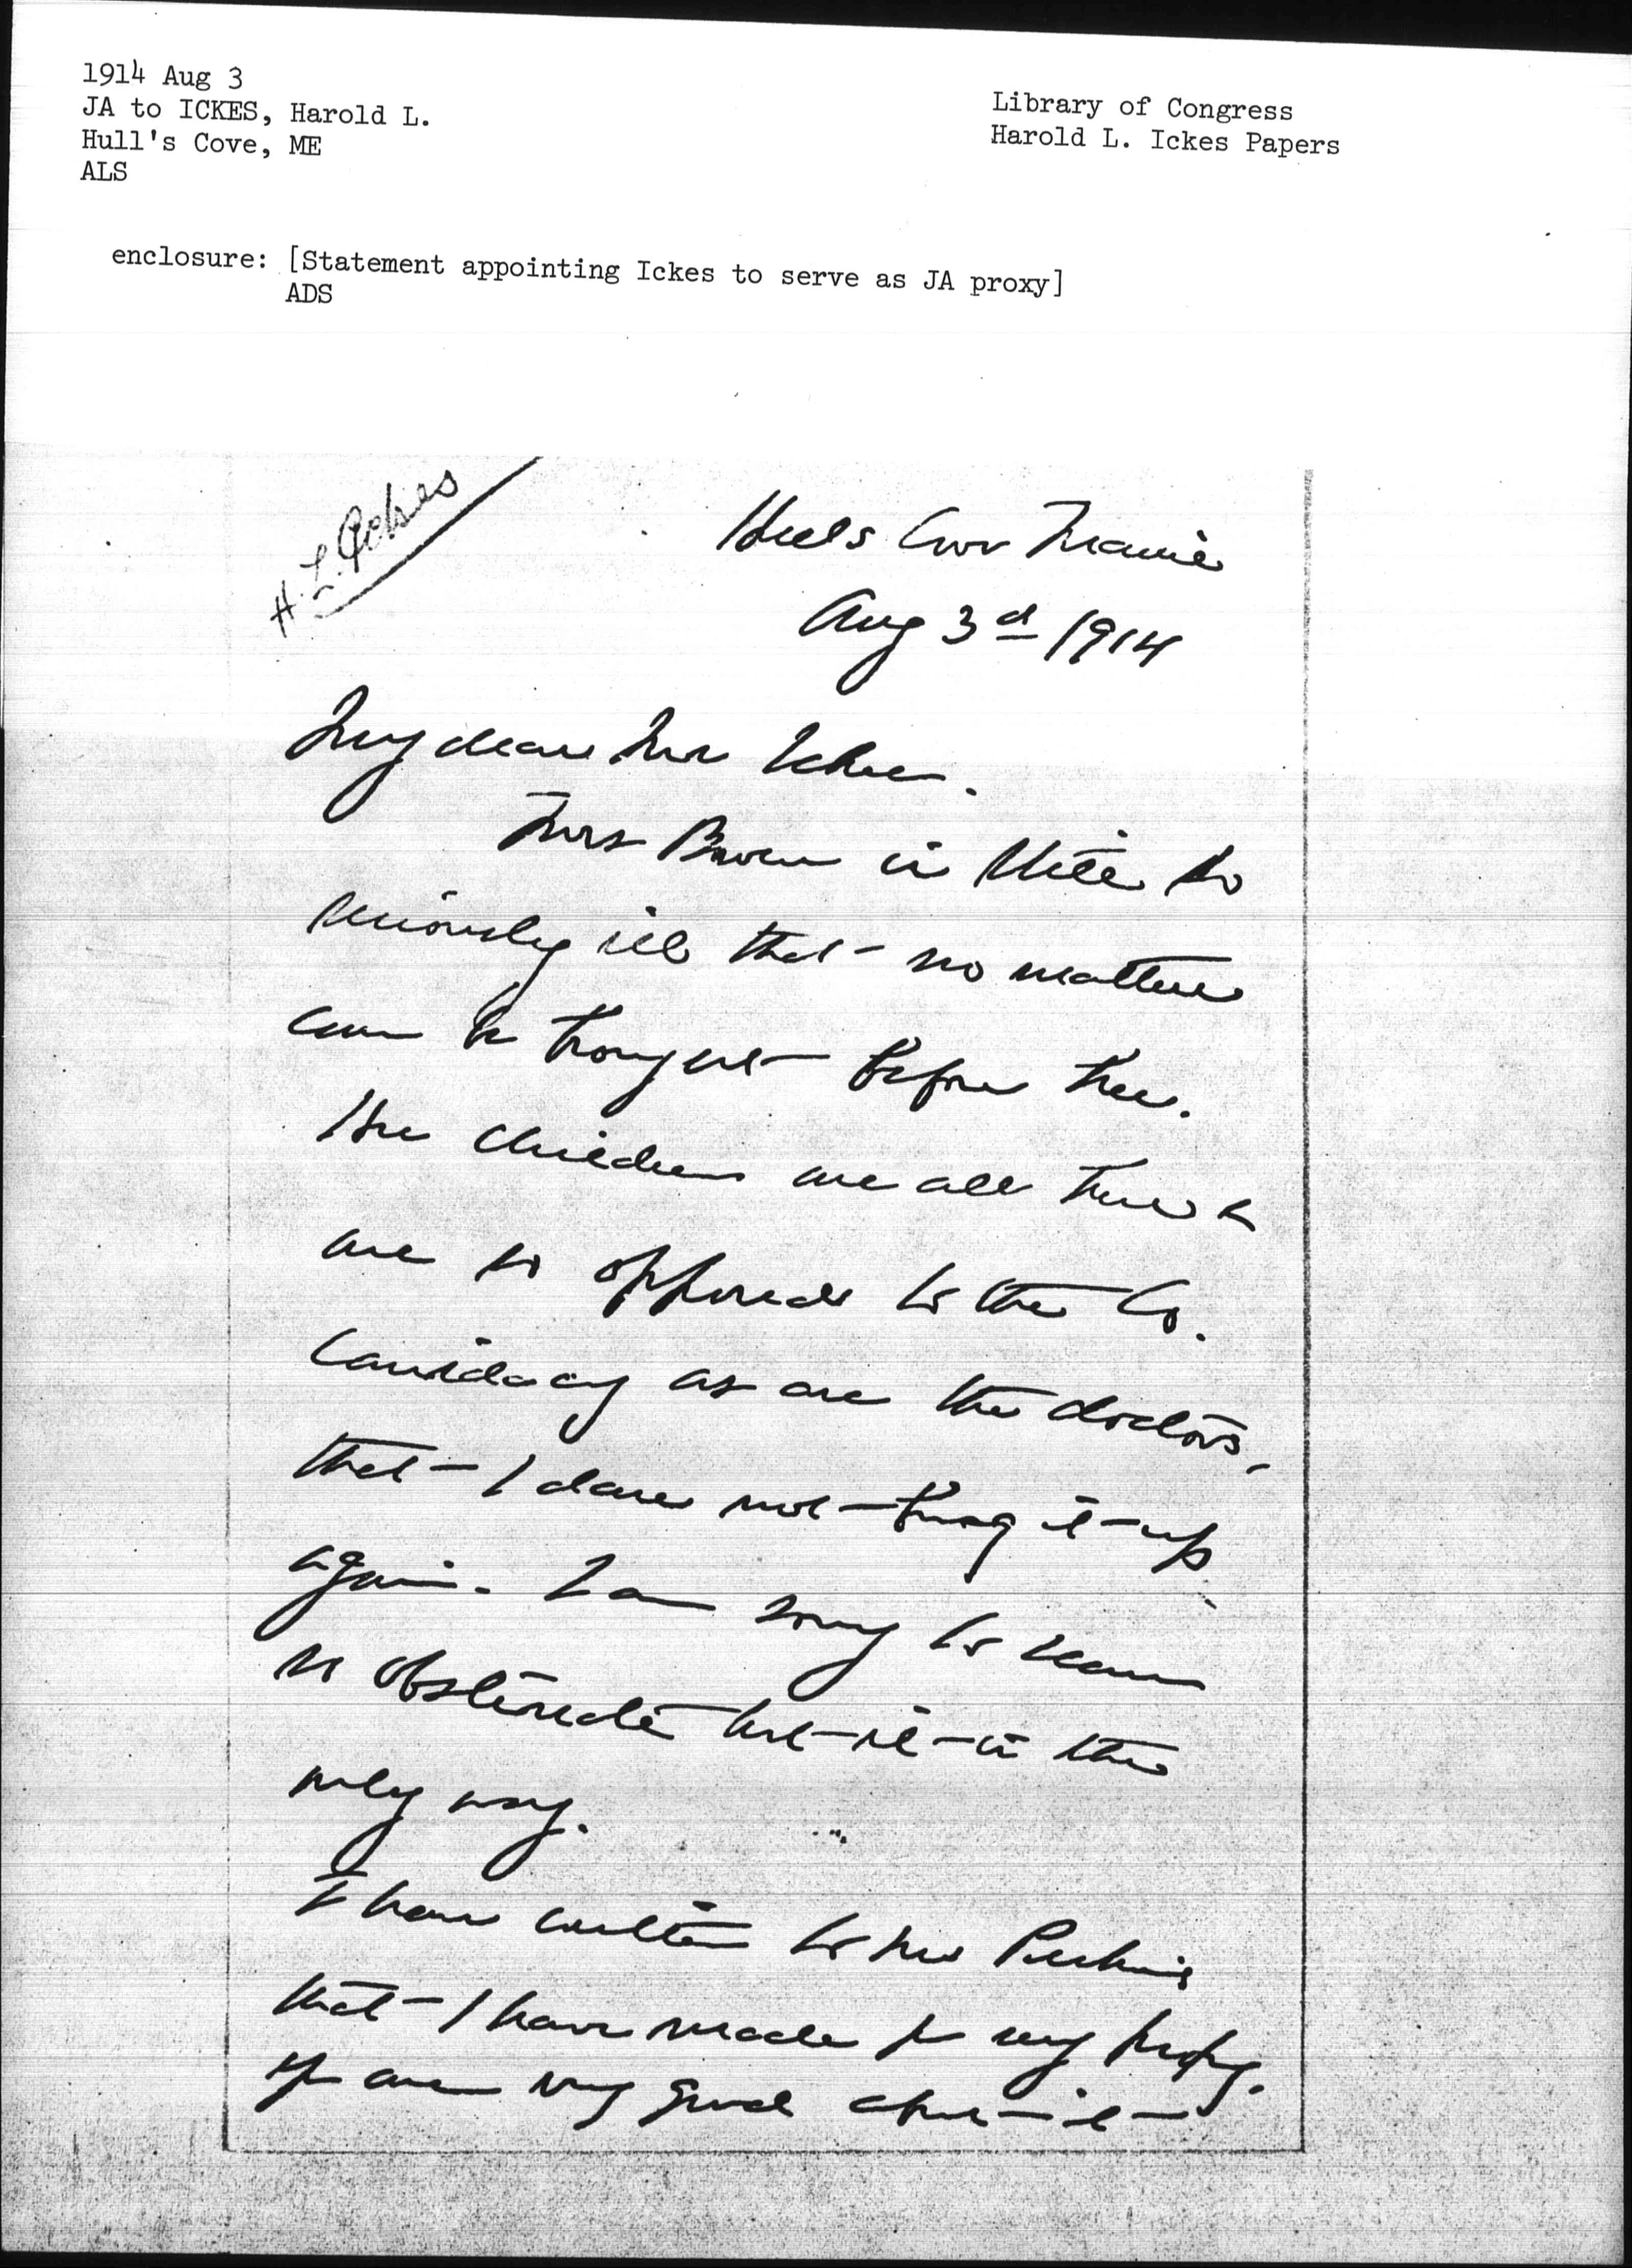 1914 Aug 3
JA to ICKES, Harold L.
Hull's Cove, ME
ALS
Library of Congress
Harold L. Ickes Papers
enclosure: [Statement appointing Ickes to serve as JA proxy]
ADS
H. L. Ickes
Hulls Cove Maine
Aug 3d 1914
My dear Mr Ickes.
Mrs Bowen is still so
seriously ill that no matters
can be brought before her.
Her children are all here &
are so opposed to the Co.
Candidacy as are the doctors,
that I dare not bring it up
again. I am sorry to seem
so obstinate but it is the
only way.
I have written to Mr Perkins
that I have made you my proxy.
You are very good about it